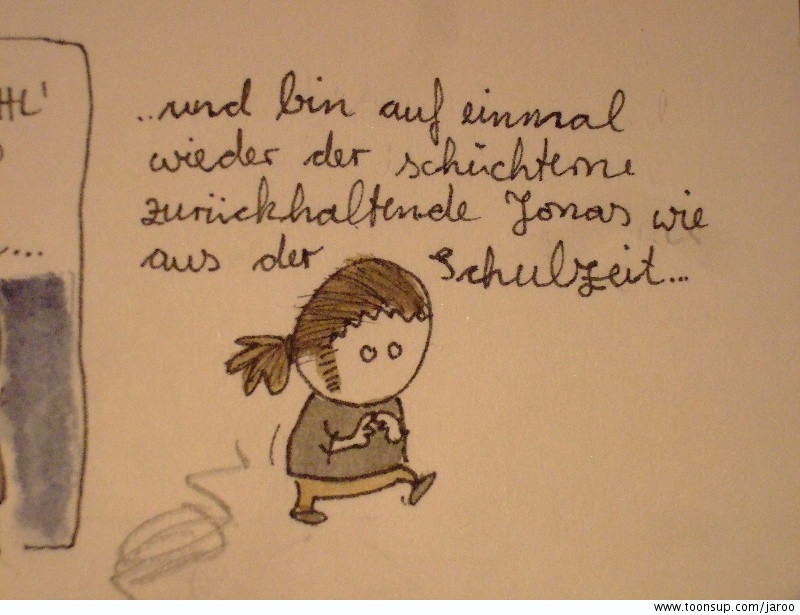 HL'
...
..und bin auf einmal
wieder der schüchterne
zurückhaltende Jonas wie
aus der Schulzeit...
www.toonsup.com/jaroo